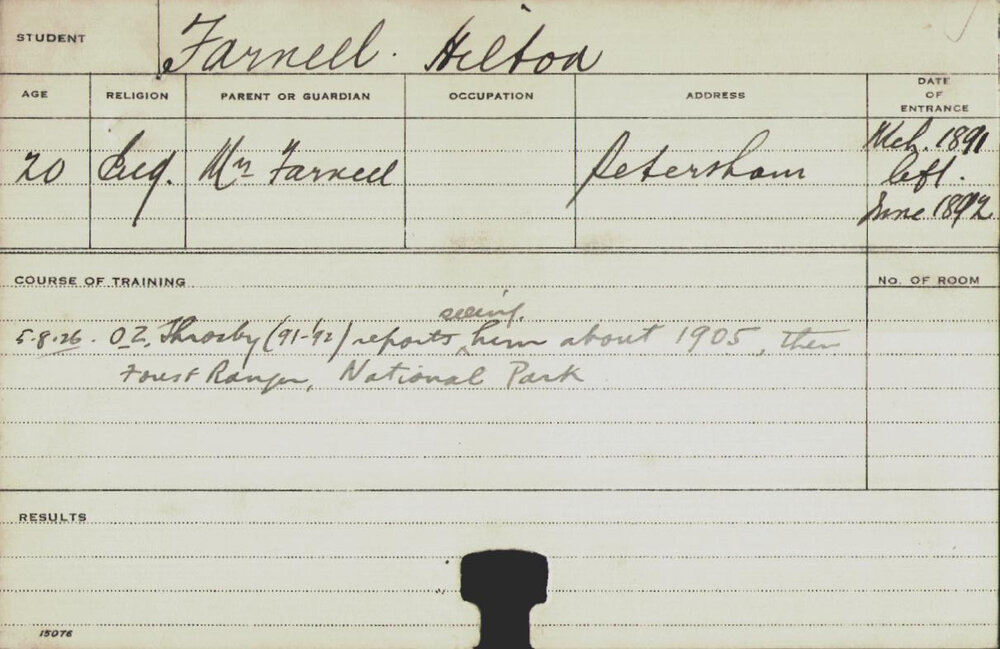 STUDENT Farnell. Hilton
AGE RELIGION PARENT OR GUARDIAN OCCUPATION ADDRESS DATE OF ENTRANCE
20 Eng. Mr Farnell Petersham Mch. 1891
left.
June 1892
COURSE OF TRAINING No. OF ROOM
seeing
5.8.26. O.Z. Throsby (91-92) reports ^ him about 1905, then
Forest Ranger, National Park
RESULTS
15076